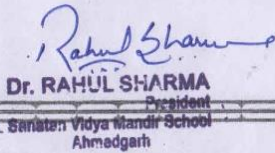 Rahul Sharma
Dr. RAHUL SHARMA
President
. Sanatan Vidya Mandir School
Ahmedgarh